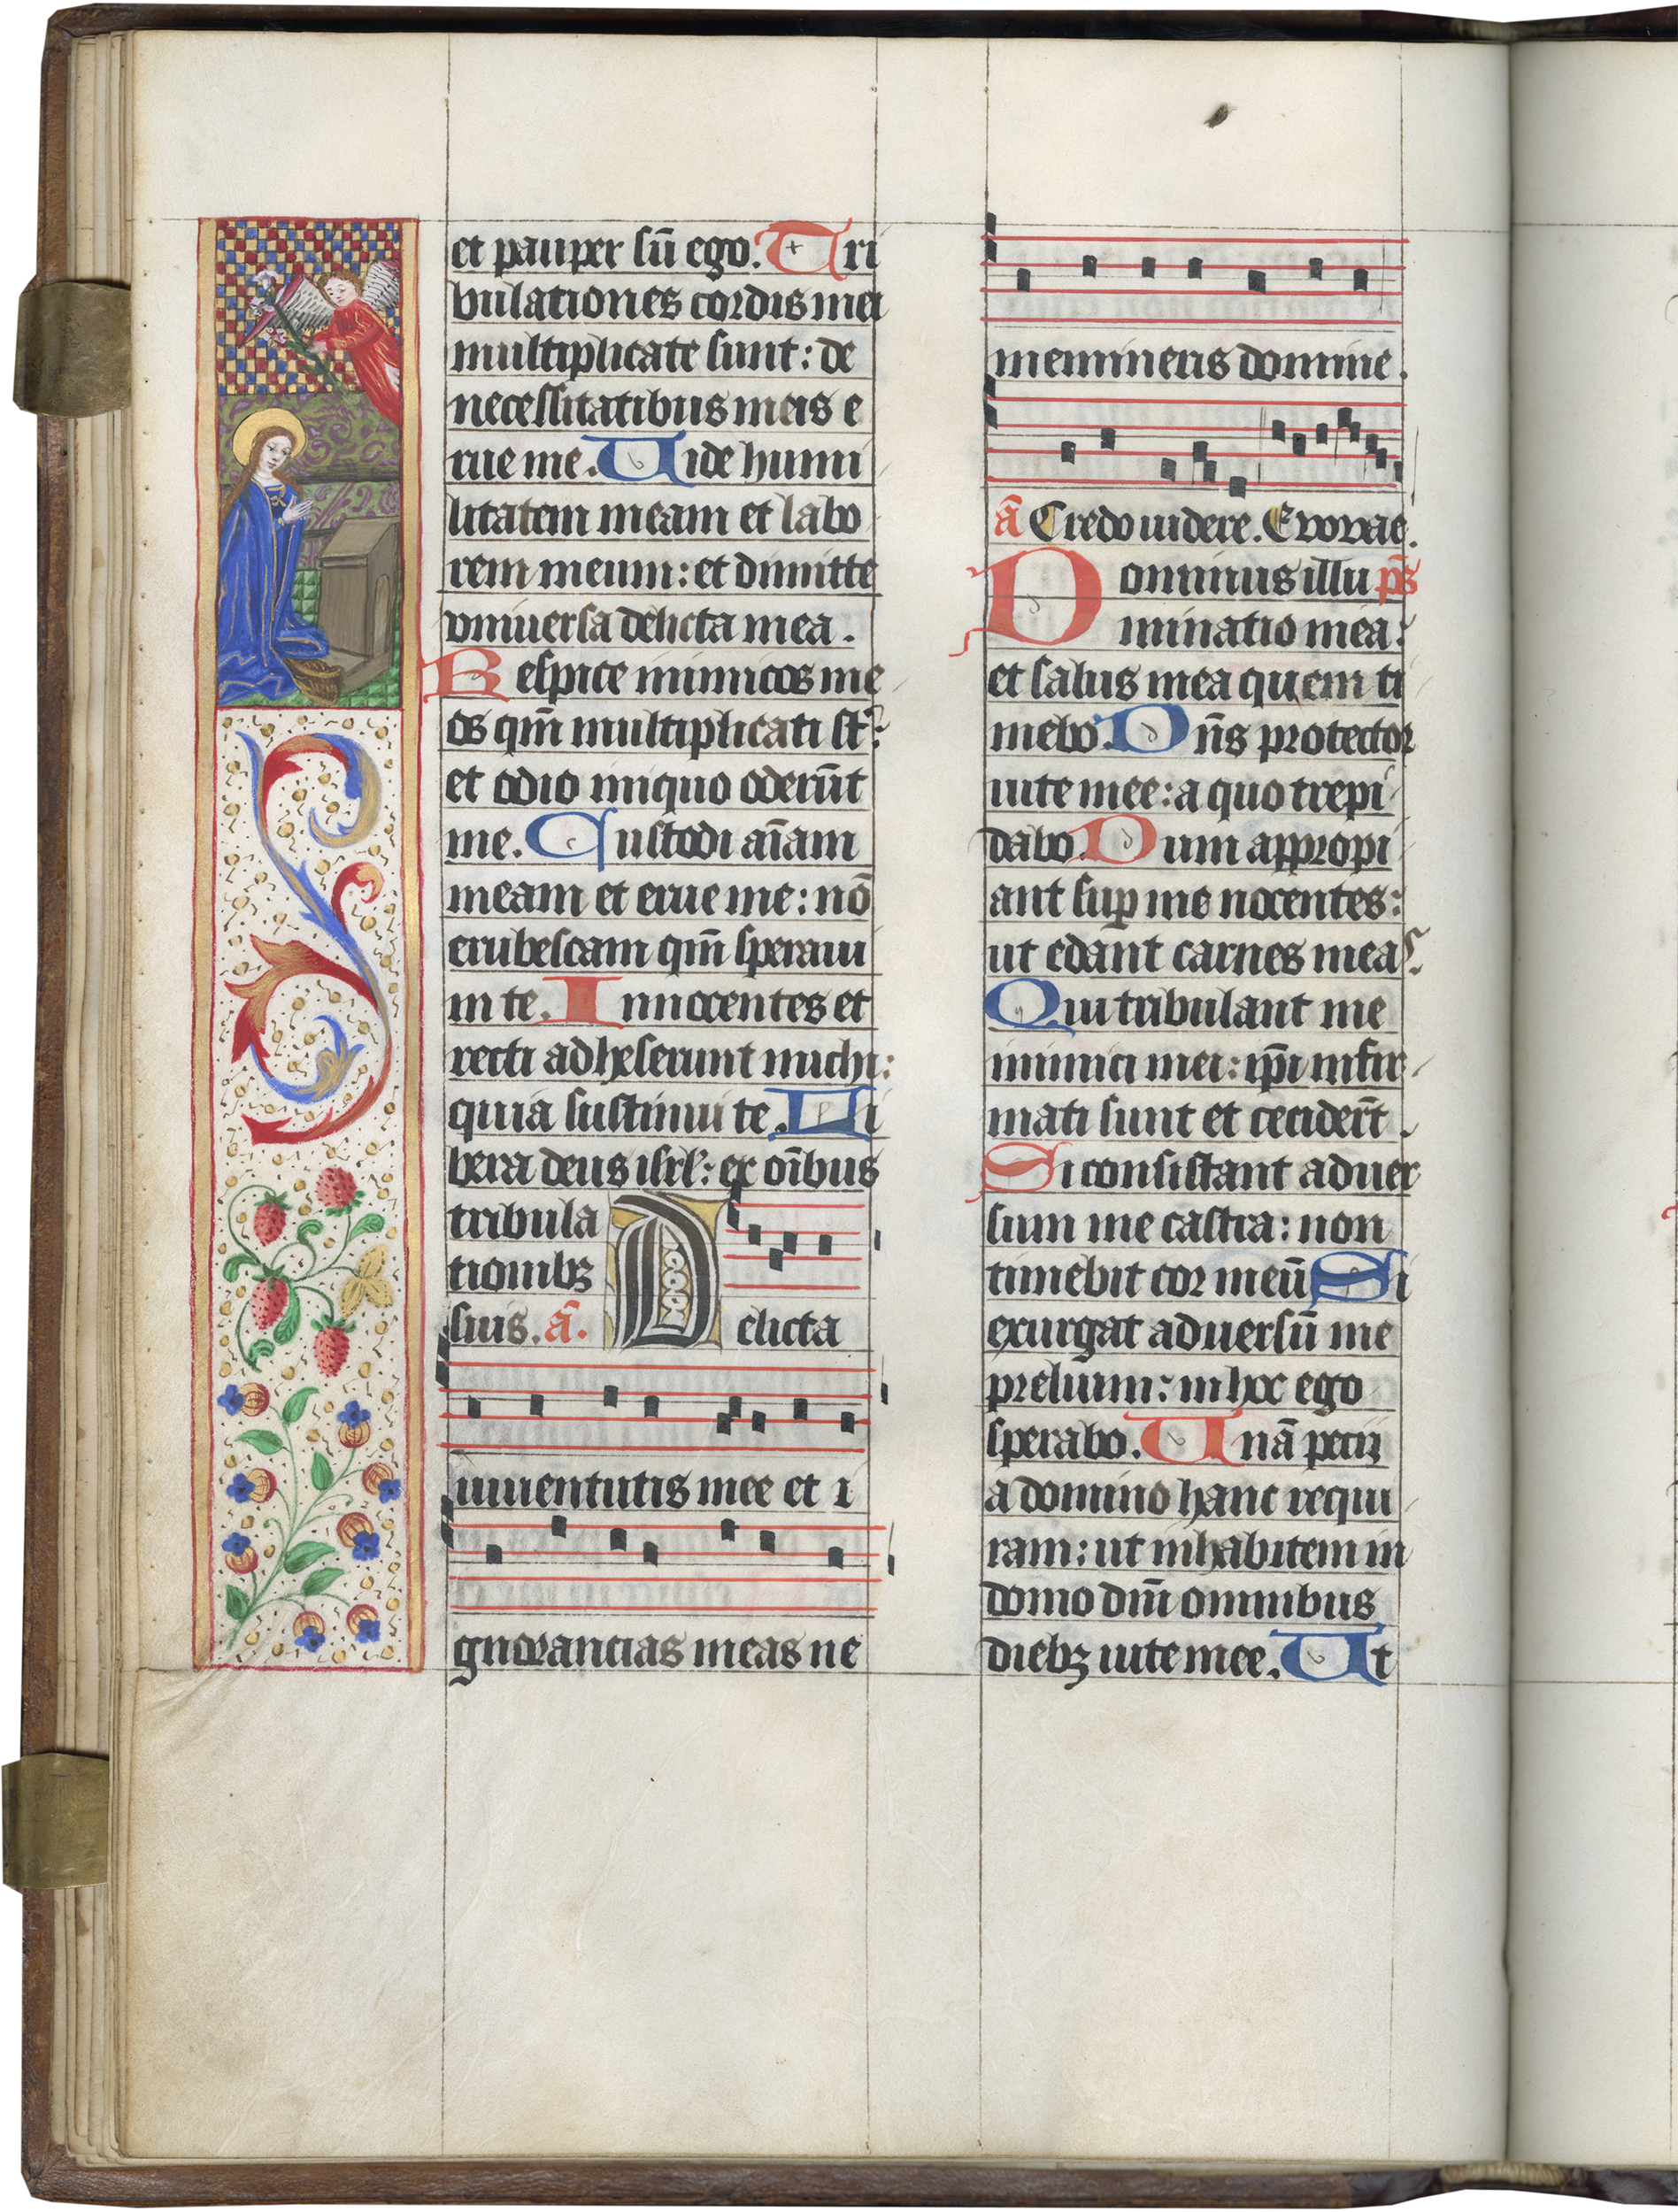 et pauper sū ego. Tri
bulationes cordis mei
multiplicate sunt: de
necessitatibus meis e
rue me. Uide humi
litatem meam et labo
rem meum: et dimitte
vniuersa delicta mea.
Respice inimicos me
os qm̄ multiplicati st̄:
et odio iniquo oderūt
me. Custodi aīam
meam et erue me: nō
erubescam qm̄ speraui
in te. Innocentes et
recti adheserunt michi:
quia sustinui te. Li
bera deus isrl: ex oībus
tribula
tionibꝫ
suis. ā. Delicta
iuuentutis mee et i
gnorancias meas ne
memineris domine.
ā Credo uidere. Evovae.
Dominus illu p̄s
minatio mea:
et salus mea quem ti
mebo. Dn̄s protector
uite mee: a quo trepi
dabo. Dum appropi
ant sup me nocentes:
ut edant carnes meas.
Qui tribulant me
inimici mei: ip̄i infir
mati sunt et cecider̄t.
Si consistant aduer
sum me castra: non
timebit cor meū. Si
exurgat aduersū me
prelium: in hoc ego
sperabo. Unā pecij
a domino hanc requi
ram: ut inhabitem in
domo dnī omnibus
diebꝫ uite mee. Ut